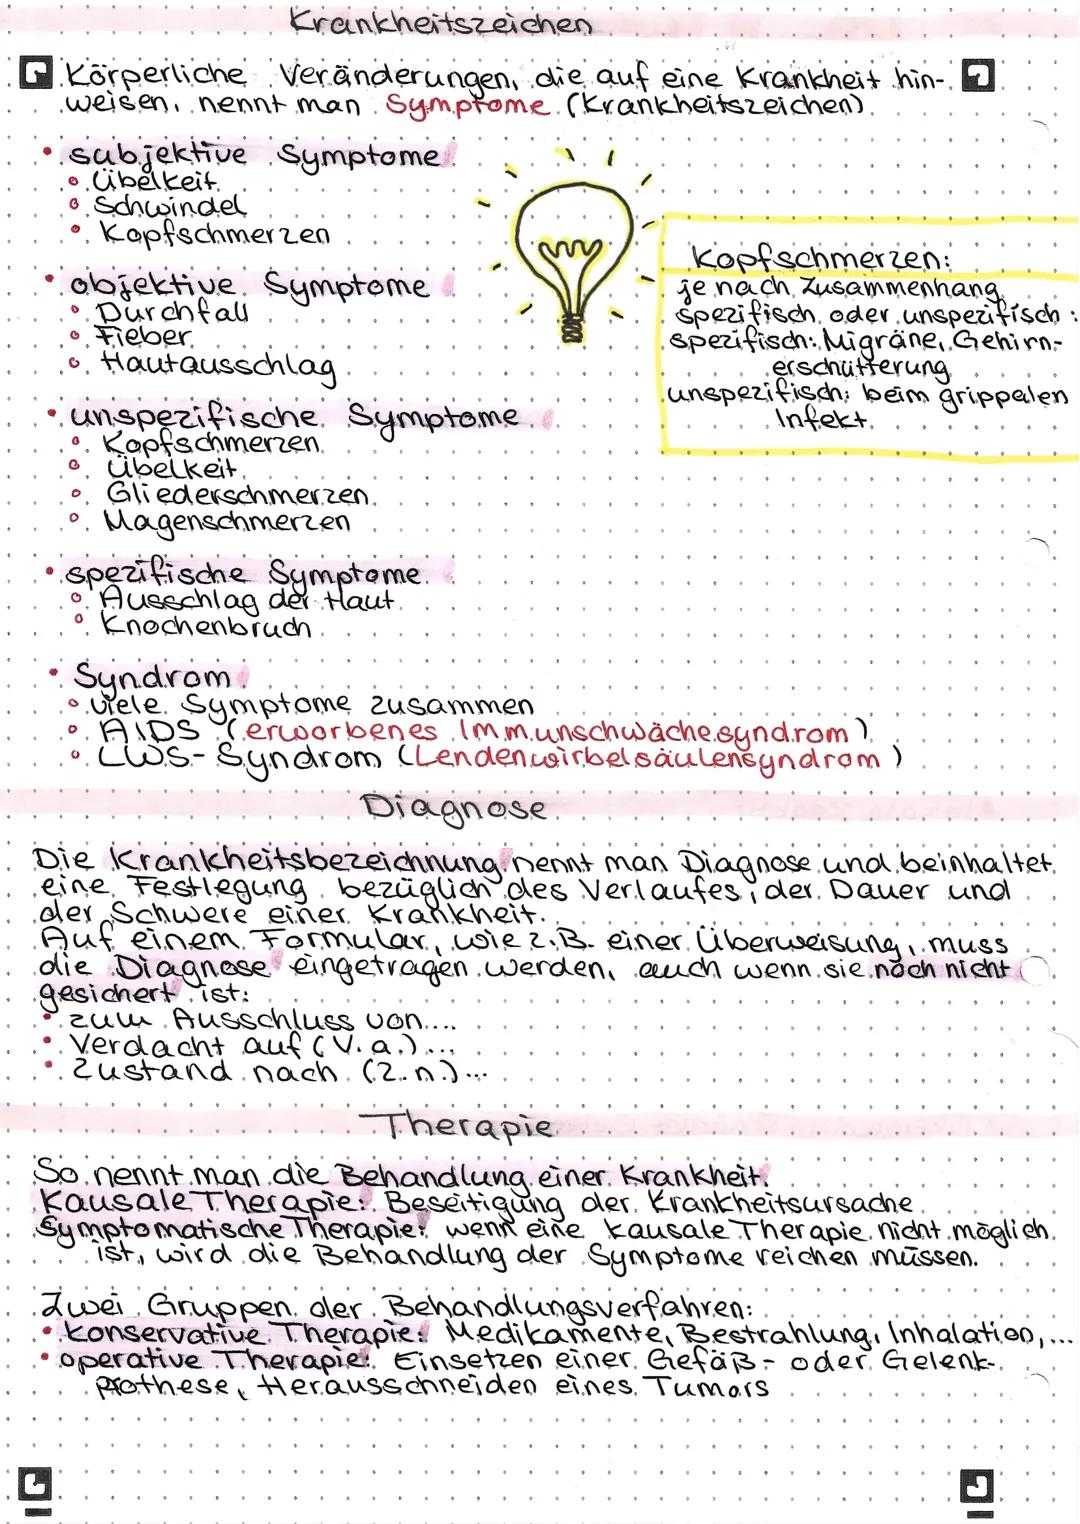 Krankheitszeichen
Körperliche Veränderungen, die auf eine Krankheit hin-
weisen, nennt man Symptome (Krankheitszeichen)
• subjektive Symptome
° Übelkeit
° Schwindel
° Kopfschmerzen
• objektive Symptome
° Durchfall
° Fieber
° Hautausschlag
Kopfschmerzen:
je nach Zusammenhang
spezifisch oder unspezifisch:
spezifisch: Migräne, Gehirn-
erschütterung
unspezifisch: beim grippalen
Infekt
• unspezifische Symptome
° Kopfschmerzen
° Übelkeit
° Gliederschmerzen
° Magenschmerzen
• spezifische Symptome
° Ausschlag der Haut
° Knochenbruch
• Syndrom
° viele Symptome zusammen
° AIDS (erworbenes Immunschwächesyndrom)
° LWS-Syndrom (Lendenwirbelsäulensyndrom)
Diagnose
Die Krankheitsbezeichnung nennt man Diagnose und beinhaltet
eine Festlegung bezüglich des Verlaufes, der Dauer und
der Schwere einer Krankheit.
Auf einem Formular, wie z.B. einer Überweisung, muss
die Diagnose eingetragen werden, auch wenn sie noch nicht
gesichert ist:
• zum Ausschluss von....
• Verdacht auf (V.a.)...
• Zustand nach (Z.n.)...
Therapie
So nennt man die Behandlung einer Krankheit.
Kausale Therapie: Beseitigung der Krankheitsursache
Symptomatische Therapie: wenn eine kausale Therapie nicht möglich
ist, wird die Behandlung der Symptome reichen müssen.
Zwei Gruppen der Behandlungsverfahren:
• konservative Therapie: Medikamente, Bestrahlung, Inhalation,...
• operative Therapie: Einsetzen einer Gefäß- oder Gelenk-
prothese, Herausschneiden eines Tumors